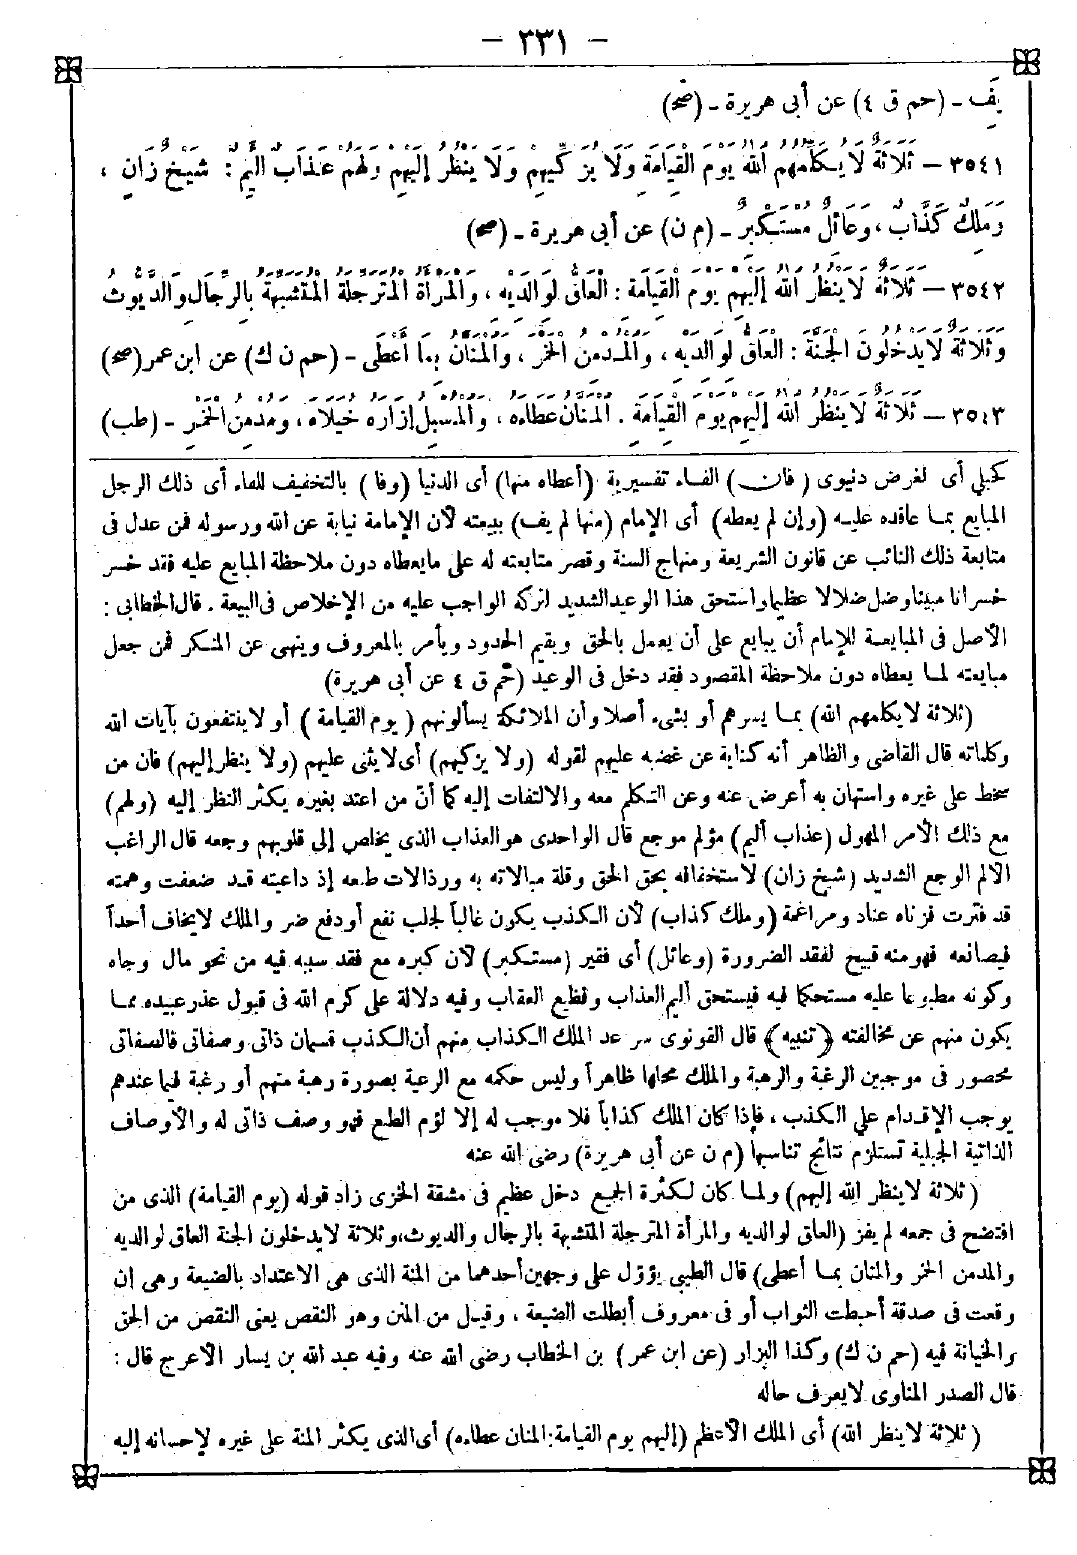 - ٣٣١ -
يَفِ - (حم ق ٤) عن أبى هريرة - (صح)
٣٥٤١ - ثَلَاثَةٌ لَا يُكَلِّمُهُمُ اللهُ يَوْمَ الْقِيَامَةِ وَلَا يُزَكِّيهِمْ وَلَا يَنْظُرُ إِلَيْهِمْ وَلَهُمْ عَذَابٌ أَلِيمٌ: شَيْخٌ زَانٍ ،
وَمَلِكٌ كَذَّابٌ ، وَعَائِلٌ مُسْتَكْبِرٌ - (م ن) عن أبى هريرة - (صح)
٣٥٤٢ - ثَلَاثَةٌ لَا يَنْظُرُ اللهُ إِلَيْهِمْ يَوْمَ الْقِيَامَةِ : الْعَاقُّ لِوَالِدَيْهِ ، وَالْمَرْأَةُ الْمُتَرَجِّلَةُ الْمُتَشَبِّهَةُ بِالرِّجَالِ وَالدَّيُّوثُ
وَثَلَاثَةٌ لَا يَدْخُلُونَ الْجَنَّةَ : الْعَاقُّ لِوَالِدَيْهِ ، وَالْمُدْمِنُ الْخَمْرَ ، وَالْمَنَّانُ بِمَا أَعْطَى - (حم ن ك) عن ابن عمر (صح)
٣٥٤٣ - ثَلَاثَةٌ لَا يَنْظُرُ اللهُ إِلَيْهِمْ يَوْمَ الْقِيَامَةِ . الْمَنَّانُ عَطَاءَهُ ، وَالْمُسْبِلُ إِزَارَهُ خُيَلَاءَ ، وَمُدْمِنُ الْخَمْرِ - (طب)
كحبلى أى لغرض دنيوى (فان) الفاء تفسيرية (أعطاه منها) أى الدنيا (وفا) بالتخفيف للفاء أى ذلك الرجل
المبايع بما عاقده عليه (وإن لم يعطه) أى الإمام (منها لم يف) ببيعته لأن الإمامة نيابة عن الله ورسوله فمن عدل فى
متابعة ذلك النائب عن قانون الشريعة ومنهاج السنة وقصر متابعته له على مايعطاه دون ملاحظة المبايع عليه فقد خسر
خسرانا مبينا وضل ضلالا عظيما واستحق هذا الوعيد الشديد لتركه الواجب عليه من الإخلاص فى البيعة . قال الخطابى :
الأصل فى المبايعة للإمام أن يبايع على أن يعمل بالحق ويقيم الحدود ويأمر بالمعروف وينهى عن المنكر فمن جعل
مبايعته لما يعطاه دون ملاحظة المقصود فقد دخل فى الوعيد (حم ق ٤ عن أبى هريرة)
(ثلاثة لا يكلمهم الله) بما يسرهم أو بشىء أصلا وأن الملائكة يسألونهم (يوم القيامة) أو لا ينتفعون بآيات الله
وكلماته قال القاضى والظاهر أنه كناية عن غضبه عليهم لقوله (ولا يزكيهم) أى لا يثنى عليهم (ولا ينظر إليهم) فان من
سخط على غيره واستهان به أعرض عنه وعن التكلم معه والالتفات إليه كما أن من اعتد بغيره يكثر النظر إليه (ولهم)
مع ذلك الأمر المهول (عذاب أليم) مؤلم موجع قال الواحدى هو العذاب الذى يخلص إلى قلوبهم وجعه قال الراغب
الألم الوجع الشديد (شيخ زان) لاستخفافه بحق الحق وقلة مبالاته به ورذالات طبعه إذ داعيته قد ضعفت وهمته
قد فترت فزناه عناد ومراغمة (وملك كذاب) لأن الكذب يكون غالباً لجلب نفع أو دفع ضر والملك لا يخاف أحداً
فيصانعه فهو منه قبيح لفقد الضرورة (وعائل) أى فقير (مستكبر) لأن كبره مع فقد سببه فيه من نحو مال وجاه
وكونه مطبوعا عليه مستحكما فيه فيستحق أليم العذاب وفظيع العقاب وفيه دلالة على كرم الله فى قبول عذر عبيده مما
يكون منهم عن مخالفته (تنبيه) قال القونوى سر عد الملك الكذاب منهم أن الكذب قسمان ذاتى وصفاتى فالصفاتى
محصور فى موجبين الرغبة والرهبة والملك محلها ظاهراً وليس حكمه مع الرعية بصورة رهبة منهم أو رغبة فيما عندهم
يوجب الإقدام على الكذب ، فإذا كان الملك كذاباً فلا موجب له إلا لؤم الطبع فهو وصف ذاتى له والأوصاف
الذاتية الجبلية تستلزم نتائج تناسبها (م ن عن أبى هريرة) رضى الله عنه
(ثلاثة لا ينظر الله إليهم) ولما كان لكثرة الجمع دخل عظيم فى مشقة الخزى زاد قوله (يوم القيامة) الذى من
افتضح فى جمعه لم يفز (العاق لوالديه والمرأة المترجلة المتشبهة بالرجال والديوث، وثلاثة لا يدخلون الجنة العاق لوالديه
والمدمن الخمر والمنان بما أعطى) قال الطيبى يؤول على وجهين أحدهما من المنة الذى هى الاعتداد بالضيعة وهى إن
وقعت فى صدقة أحبطت الثواب أو فى معروف أبطلت الضيعة ، وقيل من المن وهو النقص يعنى النقص من الحق
والخيانة فيه (حم ن ك) وكذا البزار (عن ابن عمر) بن الخطاب رضى الله عنه وفيه عبد الله بن يسار الأعرج قال :
قال الصدر المناوى لا يعرف حاله
(ثلاثة لا ينظر الله) أى الملك الأعظم (إليهم يوم القيامة: المنان عطاءه) أى الذى يكثر المنة على غيره لإحسانه إليه